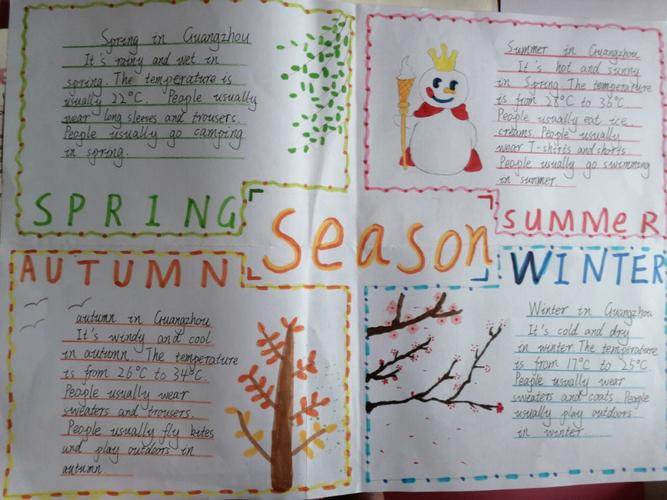 Spring in Guangzhou
It's rainy and wet in
spring. The temperature is
usually 22°C. People usually
wear long sleeves and trousers.
People usually go camping
in spring.
SPRING
Summer in Guangzhou
It's hot and sunny
in Spring The temperature
is from 28°C to 36°C
People usually eat ice
creams. People usually
wear T-shirts and shorts.
People usually go swimming
in summer
SUMMeR
Season
AUTUMN
autumn in Guangzhou
It's windy and cool
in autumn The temperature
is from 26°C to 34°C.
People usually wear
sweaters and trousers.
People usually fly bites
and play outdoors in
autumn
WINTER
Winter in Guangzhou
It's cold and dry
in winter The temperature
is from 17°C to 25°C
People usually wear
sweaters and coats People
usually play outdoors
in winter